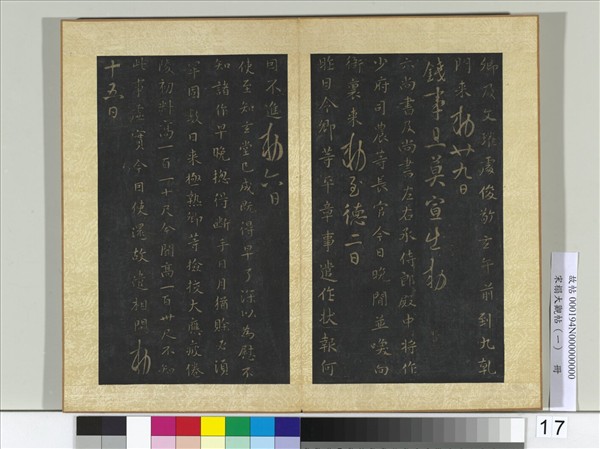 卿及文瓘處俊敬玄午前到九乾
門來敕廿九日
錢事且莫宣出敕
六尚書及尚書左右丞侍郎殿中將作
少府司農等長官今日晚閒並喚向
衙裏來敕至德二日
昨日令卿等平章事遣作狀報何
因不進敕六日
使至知玄堂已成成得早了深以為慰不
知諸作早晚摠得斷手日月猶賒必須
牢固數日來極熱卿等檢校大應疲倦
初料高一百一十尺今聞高一百卅尺不知
此事虛實今因使還故遣相問敕
十五日
故帖 000194N000000000
宋搨大觀帖(一) 冊
17